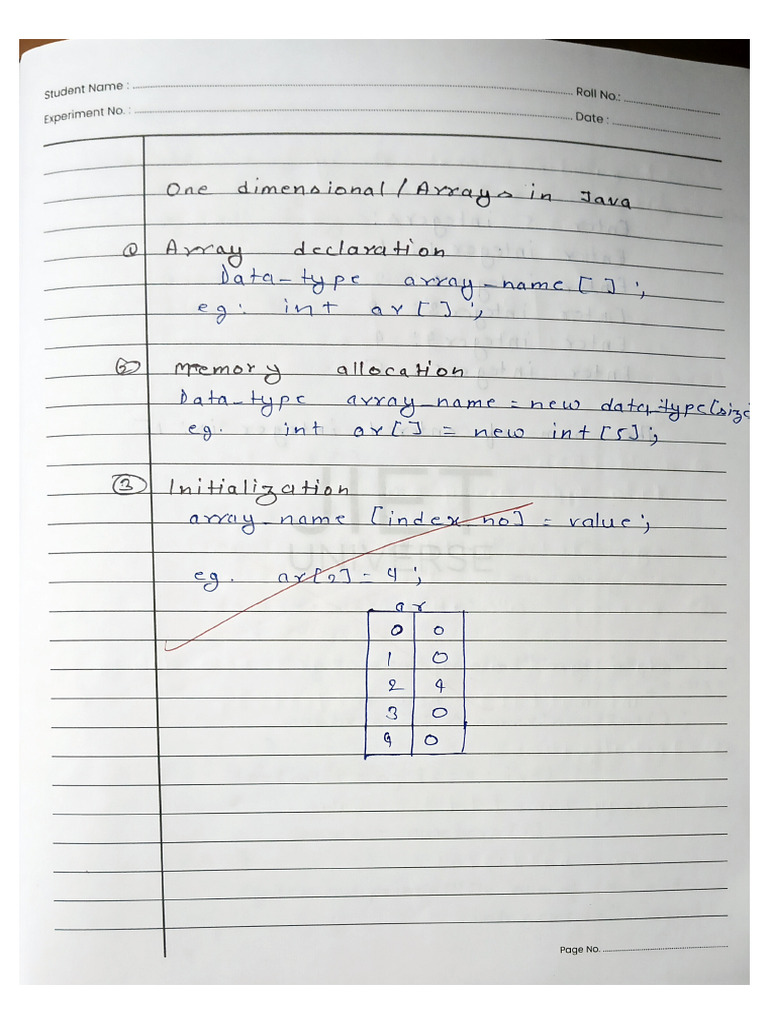 Student Name :
Roll No.:
Experiment No. :
Date :
One dimensional / Arrays in Java
① Array declaration
Data-type array-name [ ] ;
eg: int ar[ ] ;
② Memory allocation
Data-type array_name = new data-type[size
eg. int ar[ ] = new int [5] ;
③ Initialization
array-name [index no] = value ;
JIET
UNIVERSE
eg. ar[2] = 4 ;
ar
0 0
1 0
2 4
3 0
4 0
Page No.